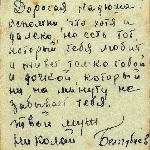 Дорогая Радюша
вспомни что хотя и
далеко, но есть тот
который тебя любит
и живет только тобой
и дочкой который
ни на минуту не
забывает тебя.
твой муж
Николай